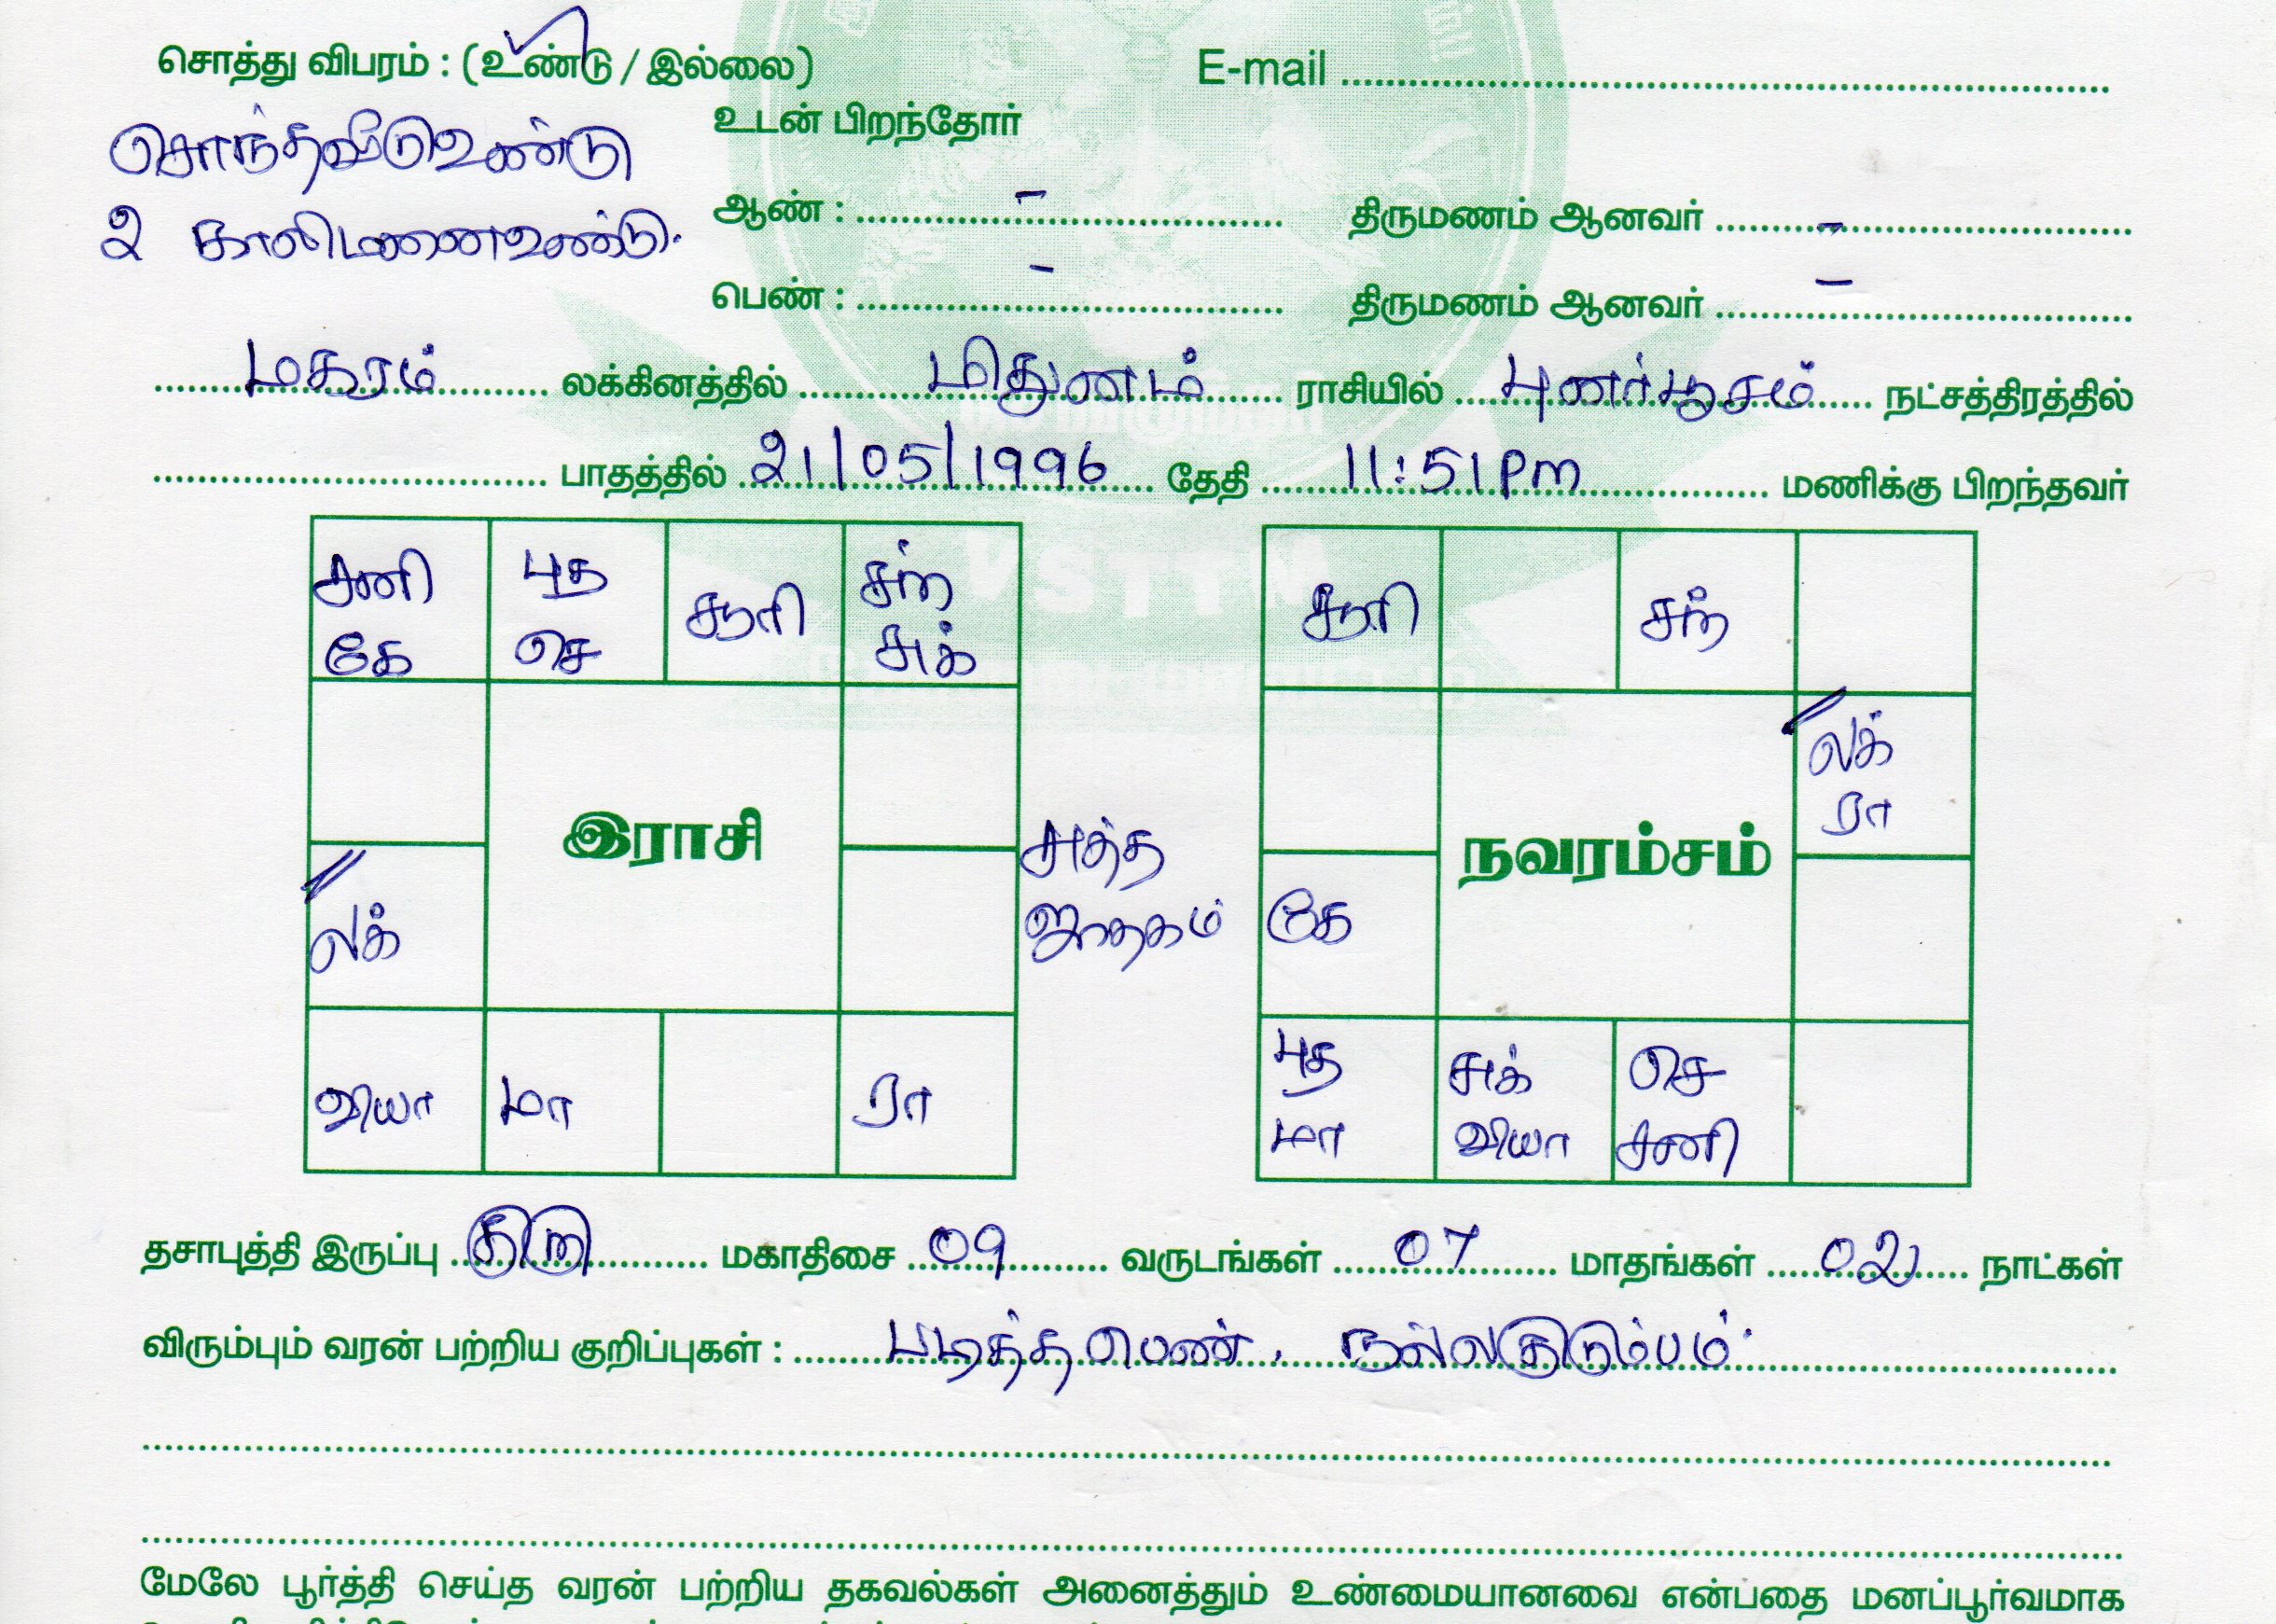 சொத்து விபரம் : (உண்டு / இல்லை) E-mail
சொந்தவீடு உண்டு
உடன் பிறந்தோர்
2 காலிமனை உண்டு.
ஆண் : - திருமணம் ஆனவர் -
பெண் : - திருமணம் ஆனவர் -
மகரம் லக்கினத்தில் மிதுனம் ராசியில் புனர்பூசம் நட்சத்திரத்தில்
பாதத்தில் 21/05/1996 தேதி 11:51 Pm மணிக்கு பிறந்தவர்
சனி
கே
புத
செ
சூரி
சந்
சுக்
இராசி
லக்
வியா
மா
ரா
சுத்த
ஜாதகம்
சூரி
சந்
லக்
ரா
நவரம்சம்
கே
புத
மா
சுக்
வியா
செ
சனி
தசாபுத்தி இருப்பு குரு மகாதிசை 09 வருடங்கள் 07 மாதங்கள் 02 நாட்கள்
விரும்பும் வரன் பற்றிய குறிப்புகள் : படித்த பெண், நல்ல குடும்பம்.
மேலே பூர்த்தி செய்த வரன் பற்றிய தகவல்கள் அனைத்தும் உண்மையானவை என்பதை மனப்பூர்வமாக